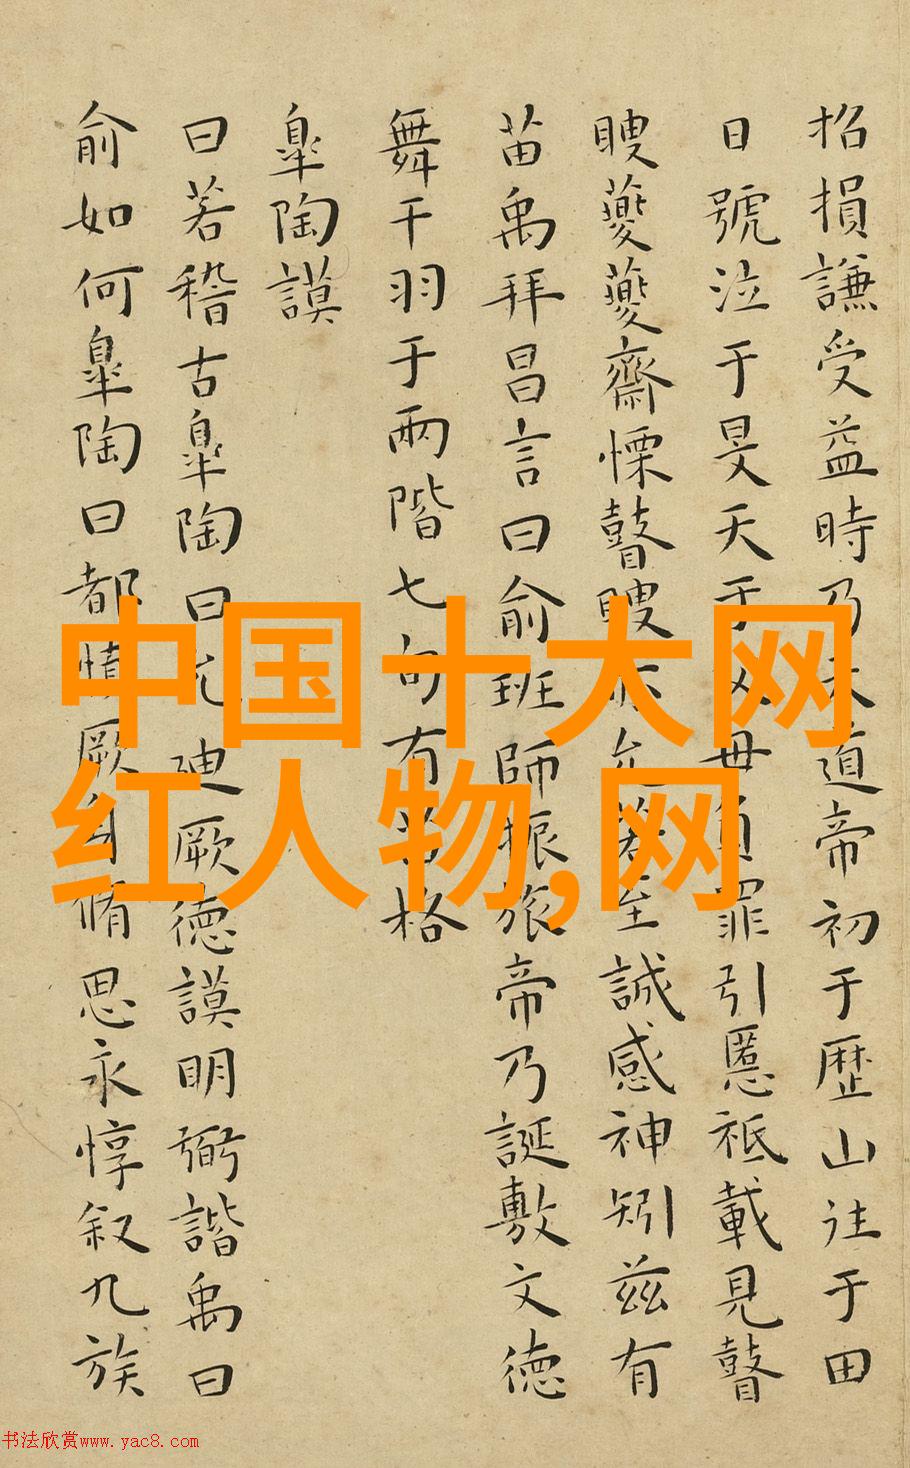 招損謙受益時乃天道帝初于歷山往于田
日號泣于旻天于父母負罪引慝祗載見瞽
瞍夔夔齋慄瞽瞍亦允若至誠感神矧茲有
苗禹拜昌言曰俞班師振旅帝乃誕敷文德
舞干羽于兩階七旬有苗格
皐陶謨
曰若稽古皐陶曰允迪厥德謨明弼諧禹曰
俞如何皐陶曰都慎厥身脩思永惇叙九族
中国十大网
红人物,网
书法欣赏www.yac8.com